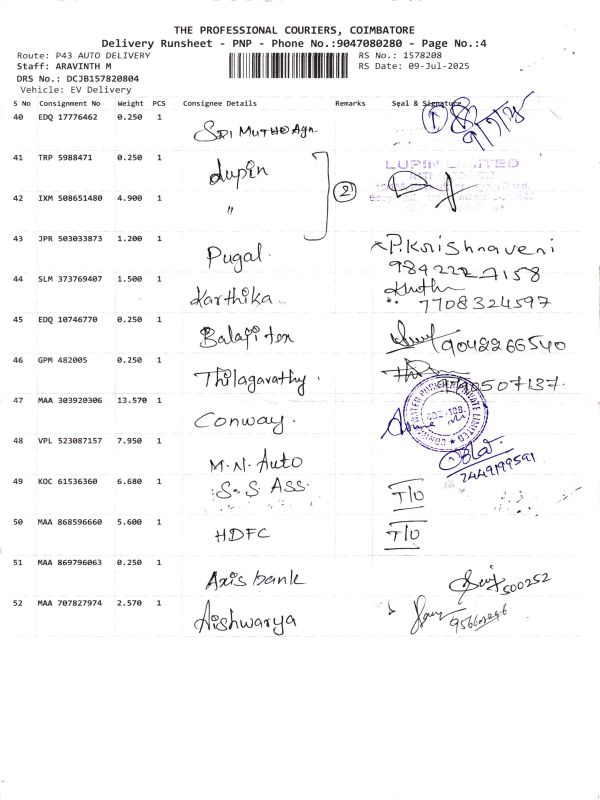 THE PROFESSIONAL COURIERS, COIMBATORE
Delivery Runsheet - PNP - Phone No.:9047080280 - Page No.:4
Route: P43 AUTO DELIVERY
RS No.: 1578208
Staff: ARAVINTH M
RS Date: 09-Jul-2025
DRS No.: DCJB157820804
Vehicle: EV Delivery
S No Consignment No Weight PCS Consignee Details Remarks Seal & Signature
40 EDQ 17776462 0.250 1 SRI MUTHU Agn. 1
41 TRP 5988471 0.250 1 Lupin LUPIN LIMITED
2
42 IXM 508651480 4.900 1 "
43 JPR 503033873 1.200 1 Pugal. P.Krishnaveni
9842227158
44 SLM 373769407 1.500 1 Karthika
7708324597
45 EDQ 10746770 0.250 1 Balaji tex 9042266540
46 GPM 482005 0.250 1 Thilagavathy.
47 MAA 303920306 13.570 1 Conway.
48 VPL 523087157 7.950 1 M.N. Auto
49 KOC 61536360 6.680 1 S.S ASS. T/O
50 MAA 868596660 5.600 1 HDFC T/O
51 MAA 869796063 0.250 1 Axis bank 500252
52 MAA 707827974 2.570 1 Aishwarya